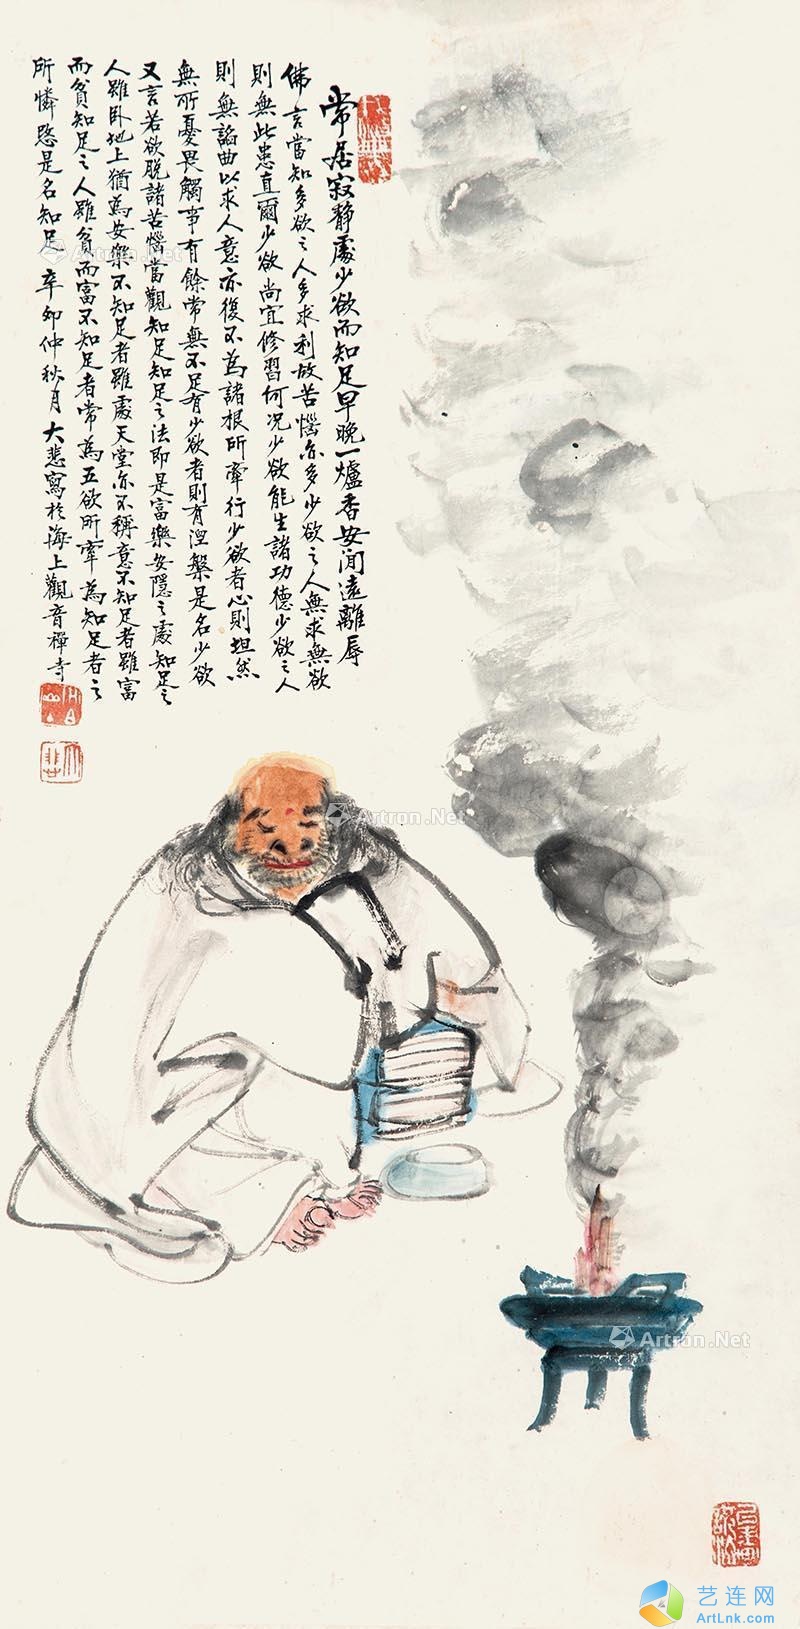 常居寂静處少欲而知足早晚一爐香安閒遠離辱
佛言當知多欲之人多求利故苦惱亦多少欲之人無求無欲
則無此患直爾少欲尚宜修習何況少欲能生諸功德少欲之人
則無諂曲以求人意亦復不為諸根所牽行少欲者心則坦然
無所憂畏觸事有餘常無不足有少欲者則有涅槃是名少欲
又言若欲脫諸苦惱當觀知足知足之法即是富樂安隱之處知足之
人雖卧地上猶為安樂不知足者雖處天堂亦不稱意不知足者雖富
而貧知足之人雖貧而富不知足者常為五欲所牽為知足者之
所憐愍是名知足 辛卯仲秋月大悲寫於海上觀音禪寺
大悲
Artron.Net
Artron.Net
Artron.Net
Artron.Net
艺连网
ArtLnk.com